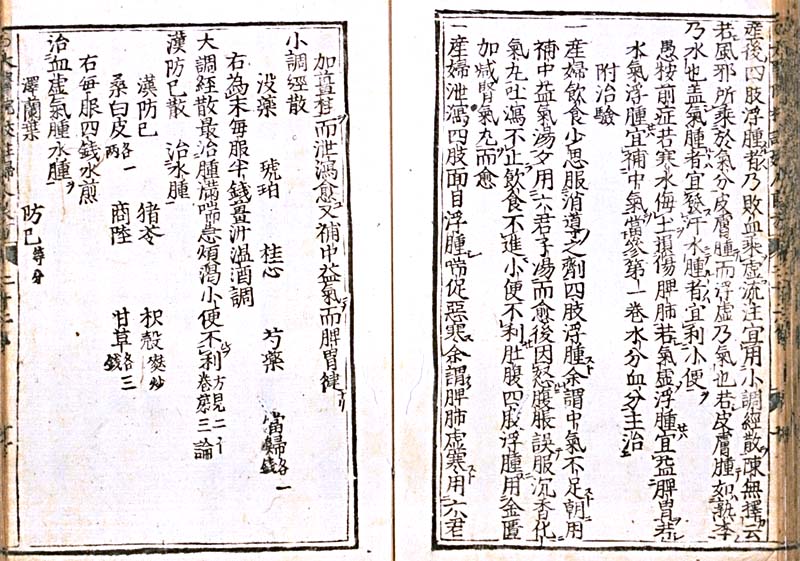 産後四肢浮腫者乃敗血乘虛流注宜用小調經散陳無擇云
若風邪所乘於氣分皮膚腫而浮虛乃氣也若皮膚腫如熟李
乃水也蓋氣腫者宜發汗水腫者宜利小便
愚按前症若寒水侮土損傷脾肺若氣虛浮腫宜益脾胃若
水氣浮腫宜補中氣當參第一卷水分血分主治
附治驗
一産婦飲食少思服消導之劑四肢浮腫余謂中氣不足朝用
補中益氣湯夕用六君子湯而愈後因怒腹脹誤服沉香化
氣丸吐瀉不止飲食不進小便不利肚腹四肢浮腫用金匱
加減腎氣丸而愈
一産婦泄瀉四肢面目浮腫喘促惡寒余謂脾肺虛寒用六君
加薑桂而泄瀉愈又補中益氣而脾胃健
小調經散
没藥 琥珀 桂心 芍藥 當歸各一錢
右為末每服半錢薑汁温酒調
大調經散最治腫滿喘急煩渴小便不利方見二十卷第三論
漢防已散 治水腫
漢防已 猪苓 枳殼 桑白皮各一兩 商陸 甘草各三錢
右每服四錢水煎
治血虛氣腫水腫
澤蘭葉 防已等分